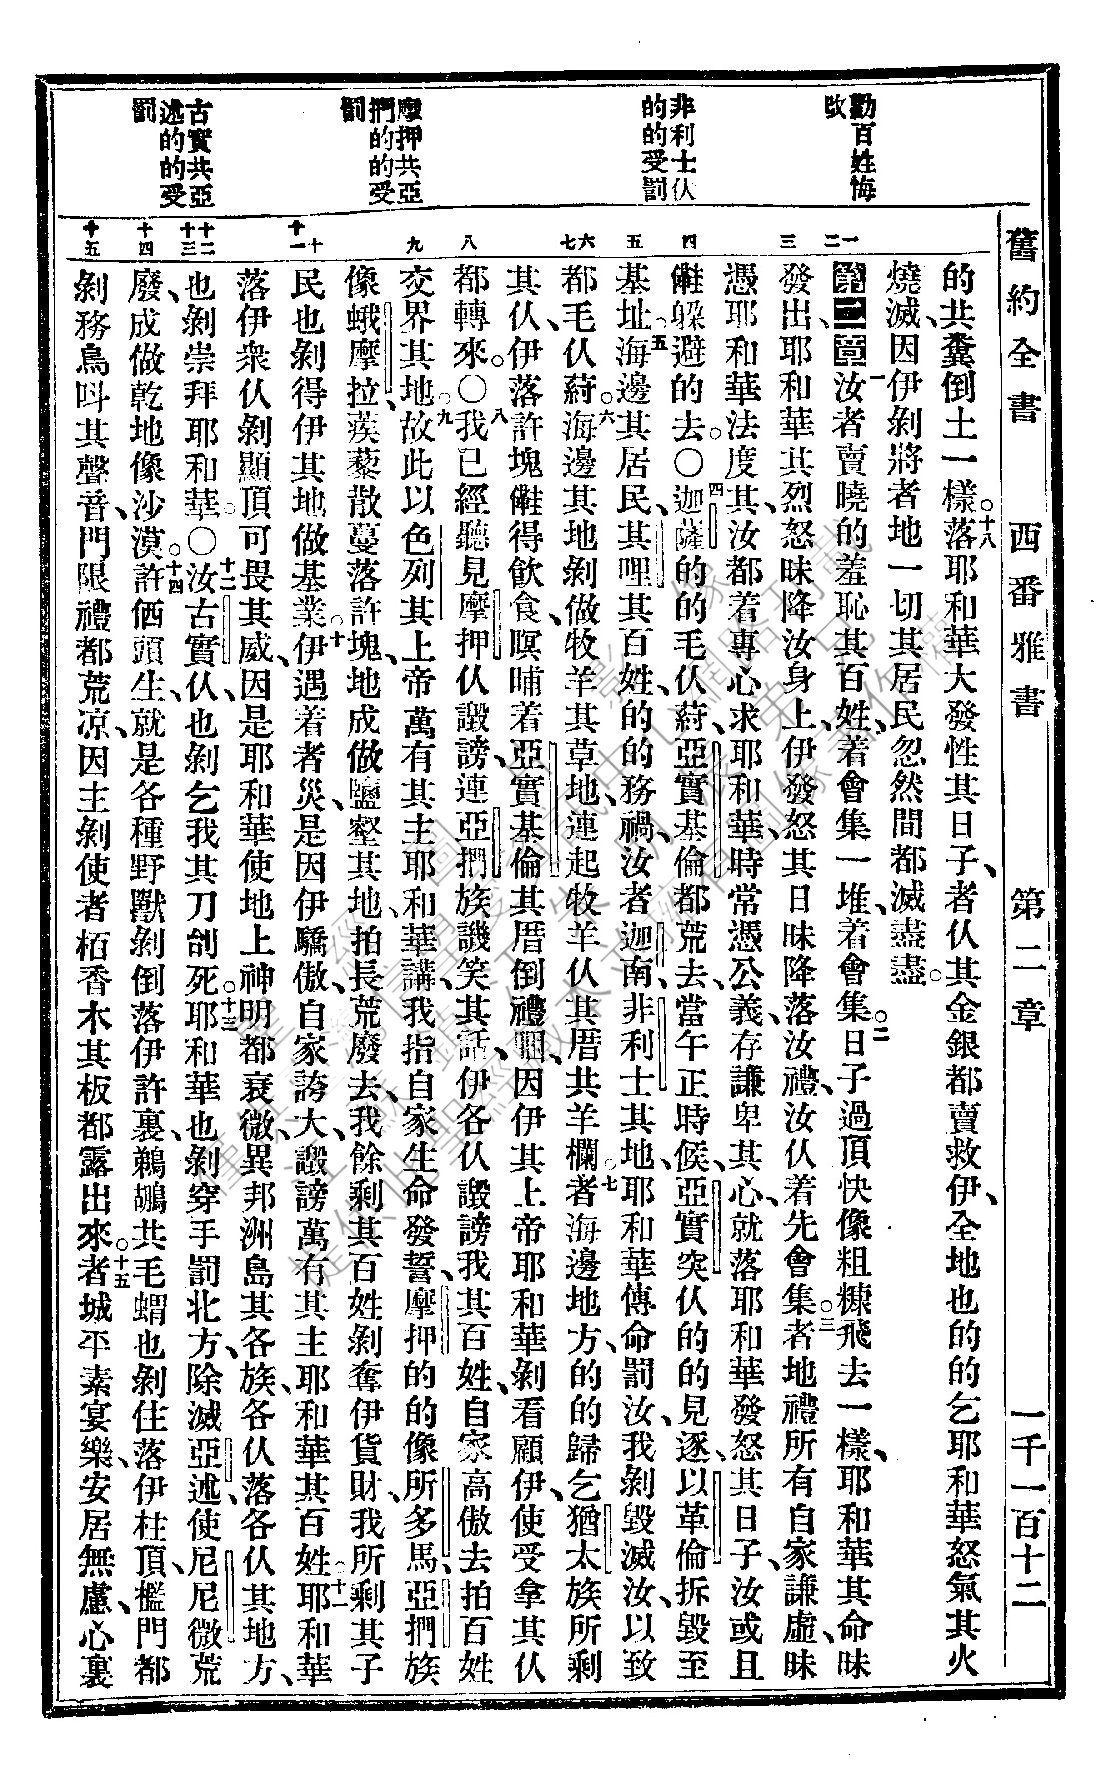 舊約全書 西番雅書 第二章 一千一百十二
勸百姓悔
改
非利士仈
的的受罰
摩押共亞
捫的的受
罰
古實共亞
述的的受
罰
的共糞倒土一樣。十八落耶和華大發性其日子、者仈其金銀都賣救伊、全地也的的乞耶和華怒氣其火
燒滅、因伊剝將者地一切其居民忽然間都滅盡盡。
第二章 一汝者賣曉的羞恥其百姓、着會集一堆、着會集。二日子過頂快像粗糠飛去一樣、耶和華其命昧
發出、耶和華其烈怒昧降汝身上、伊發怒其日昧降落汝禮、汝仈着先會集。三者地禮所有自家謙虛、昧
憑耶和華法度其、汝都着專心求耶和華、時常憑公義、存謙卑其心、就落耶和華發怒其日子、汝或且
僆躱避的去。〇四迦薩的的毛仈蒔、亞實基倫都荒去、當午正時候、亞實突仈的的見逐、以革倫拆毀至
基址。五海邊其居民、其哩其百姓、的的務禍、汝者迦南、非利士其地、耶和華傳命罰汝、我剝毀滅汝、以致
都毛仈蒔。六海邊其地剝做牧羊其草地、連起牧羊仈其厝共羊欄。七者海邊地方、的的歸乞猶太族所剩
其仈、伊落許塊僆得飮食、暝晡着亞實基倫其厝倒禮𪢮、因伊其上帝耶和華剝看顧伊、使受拿其仈
都轉來。〇八我已經聽見摩押仈譭謗、連亞捫族譏笑其話、伊各仈譭謗我其百姓、自家高傲去拍百姓
交界其地。九故此以色列其上帝萬有其主耶和華講、我指自家生命發誓、摩押的的像所多馬、亞捫族
像蛾摩拉、蒺藜散蔓落許塊、地成做鹽壑其地、拍長荒廢去、我餘剩其百姓剝奪伊貨財、我所剩其子
民也剝得伊其地做基業。十伊遇着者災、是因伊驕傲、自家誇大、譭謗萬有其主耶和華其百姓。十一耶和華
落伊衆仈剝顯頂可畏其威、因是耶和華使地上神明都衰微、異邦洲島其各族、各仈落各仈其地方、
也剝崇拜耶和華。〇十二汝古實仈、也剝乞我其刀刣死。十三耶和華也剝穿手罰北方、除滅亞述、使尼尼微荒
廢、成做乾地像沙漠。十四許偭頭生、就是各種野獸剝倒落伊許裏、鵜鶘共毛蝟也剝住落伊柱頂、檻門都
剝務鳥呌其聲音、門限禮都荒凉、因主剝使者栢香木其板都露出來。十五者城平素宴樂、安居無慮、心裏
一
二
三
四
五
六
七
八
九
十
十一
十二
十三
十四
十五